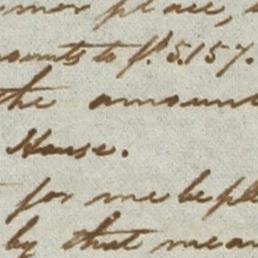 mer place,
mounts to f. 5.157.
the amount
House.
for me be
by that mean